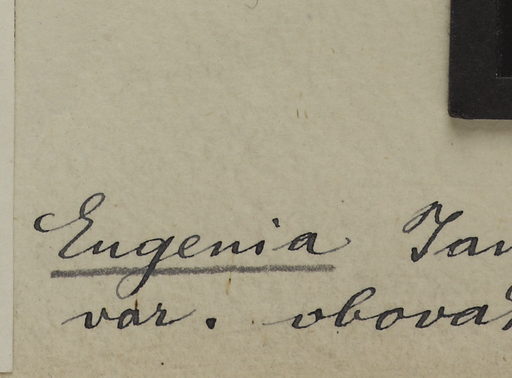 Eugenia Jav
var. obovat